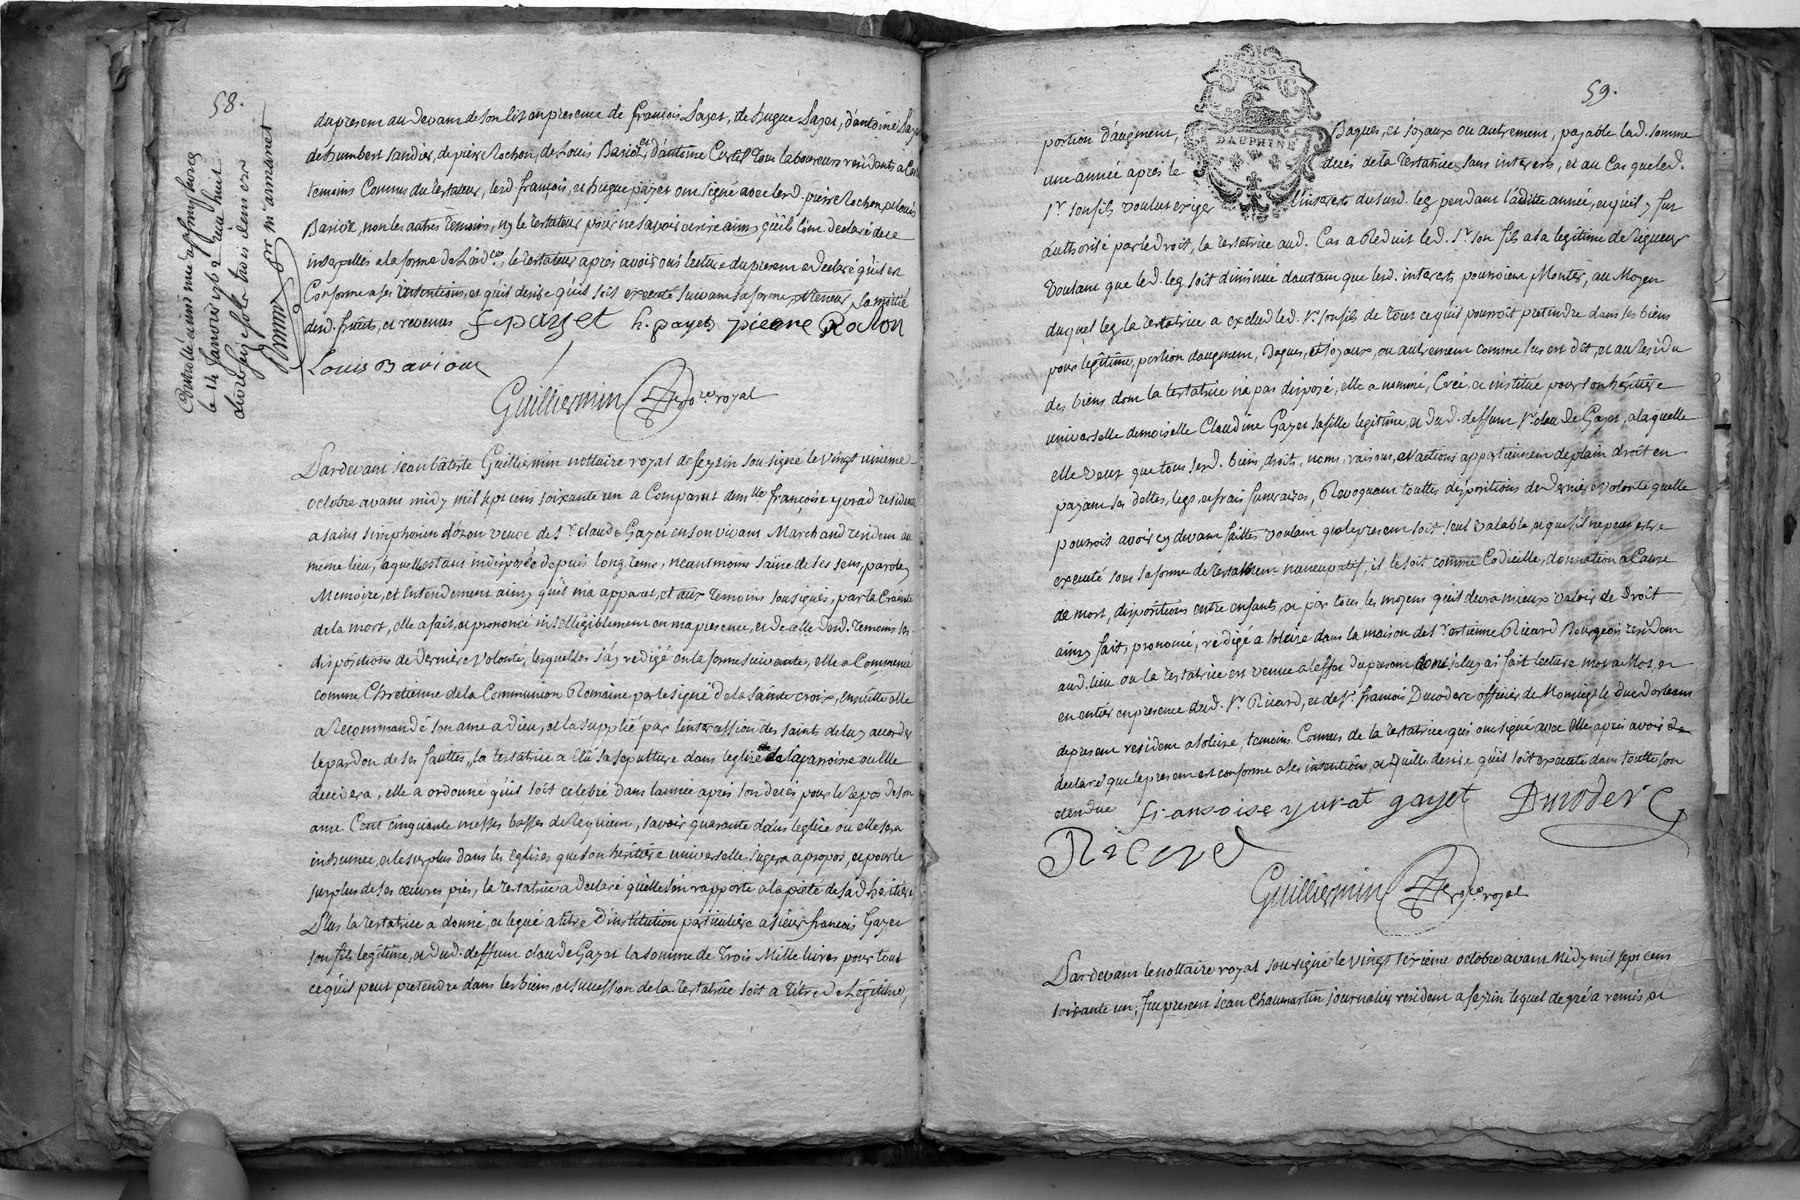 58.
du present au devant de son lit en presence de françois Payet, de hugue Payet, d'antoine
de humbert Jandier, de pierre Rochon, de Louis Bariot, et d'antoine tous laboureurs residents a
temoins Connus du testateur, lesd. françois, et hugue payet ont signé avec lesd. pierre Rochon et louis
Bariot, non les autres temoins, ny le testateur pour ne savoir ecrire ainsy qu'ils l'ont declaré de ce
interpellés a la forme de l'ord.ce, le testateur apres avoir oui lecture du present a declaré qu'il est
Conforme a ses intentions, et qu'il desire qu'il soit executé suivant sa forme et teneur, la moitié
desd. fruits, et revenus f payet h. payet pierre Rochon
Louis Bariou
Guilliermin No.re royal
Controllé a
le 14 Janvier 1762
Pardevant jean bâtiste Guilliermin nottaire royal de feyzin sousigné le vingt unieme
octobre avant midy mil sept cent soixante un a Comparut dem.lle françoise yvrad residente
a saint simphorien d'ozon veuve de s.r claude Gayet en son vivant Marchand resident au
meme lieu, laquelle etant indisposée depuis long tems, neantmoins saine de ses sens, parole,
Memoire, et Entendement ainsy qu'il m'a apparut, et aux temoins sousignés, par la Crainte
de la mort, elle a fait, et prononcé intelligiblement en ma presence, et de celle desd. temoins ses
dispositions de derniere volonté, lesquelles j'ay redigé en la forme suivante, elle a Commencé
comme Chretienne de la Communion Romaine par le signe de la sainte croix, ensuitte elle
a Recommandé son ame a Dieu, et la supplié par l'intercession des saints de luy accorder
le pardon de ses fauttes, la testatrice a élû sa sepulture dans l'eglise de la parroisse ou elle
decedera, elle a ordonné qu'il soit celebré dans l'année apres son deces pour le repos de son
ame Cent cinquante messes basses de requiem, savoir quarante dans l'eglise ou elle sera
inhumée, et le surplus dans les Eglises que son héritiere universelle jugera a propos, et pour le
surplus de ses œuvres pies, la testatrice a declaré qu'elle s'en rapporte a la pieté de sad. héritiere
Plus la testatrice a donné, et legué a titre d'institution particuliere a sieur françois Gayet
son fils legitime, et dud. deffunt claude Gayet la somme de Trois Mille livres pour tout
ce qu'il peut pretendre dans les biens, et succession de la testatrice soit a titre de Légitime,
59.
DEUX SOLS
DAUPHINE
portion d'augment, Bagues, et joyaux ou autrement, payable lad. somme
une année après le deces de la testatrice, sans interets, et au Cas que led.
s.r son fils voulut exiger l'interets du surd. leg pendant l'aditte année, et qu'il y fut
authorisé par le droit, la testatrice aud. Cas a Reduit led. s.r son fils a sa legitime de rigueur
Voulant que led. leg. soit diminué d'autant que lesd. interets pourroient Monter, au Moyen
duquel leg, la testatrice a exclud led. s.r son fils de tout ce qu'il pourroit pretendre dans ses biens
pour legitime, portion d'augment, bagues, et joyaux, ou autrement comme sus est dit, et au residu
des biens dont la testatrice n'a pas disposé, elle a nommé, Créé, et institué pour son héritiere
universelle demoiselle Claudine Gayet sa fille legitime, et dud. deffunt s.r claude Gayet, a laquelle
elle veut que tous sesd. biens, droits, noms, raisons, et actions appartiennent de plain droit en
payant ses dettes, legs, et frais funeraires, Revoquant touttes dispositions de derniere volonté quelle
pourroit avoir cy devant faittes voulant que le present soit seul valable, et que s'il ne peut etre
executé sous la forme de testament nuncupatif, il le soit comme Codicille, donnation a Cause
de mort, dispositions entre enfants, et par tous les moyens qu'il devra mieux valoir de Droit
ainsy fait, prononcé, redigé a soleize dans la maison de s.r estienne Ricard Bourgeois resident
aud. lieu ou la testatrice est venue a l'effet du present dont je luy ai fait lecture mot a Mot, et
en entier en presence dud. s.r Ricard, et de s.r francois Duvodere officier de Monseig.r le duc d'orleans
de present resident a soleize, temoins Connus de la testatrice qui ont signé avec Elle apres avoir
declaré que le present est conforme a ses intentions, et qu'elle desire qu'il soit executé dans toutte son
etendue fransoise yurat gayet
Ricard
Guilliermin No.re royal
Pardevant le nottaire royal sousigné le vingt sixieme octobre avant Midy mil sept cent
soixante un, fut present jean Chaumartin journalier resident a feyzin lequel de gré a remis, et